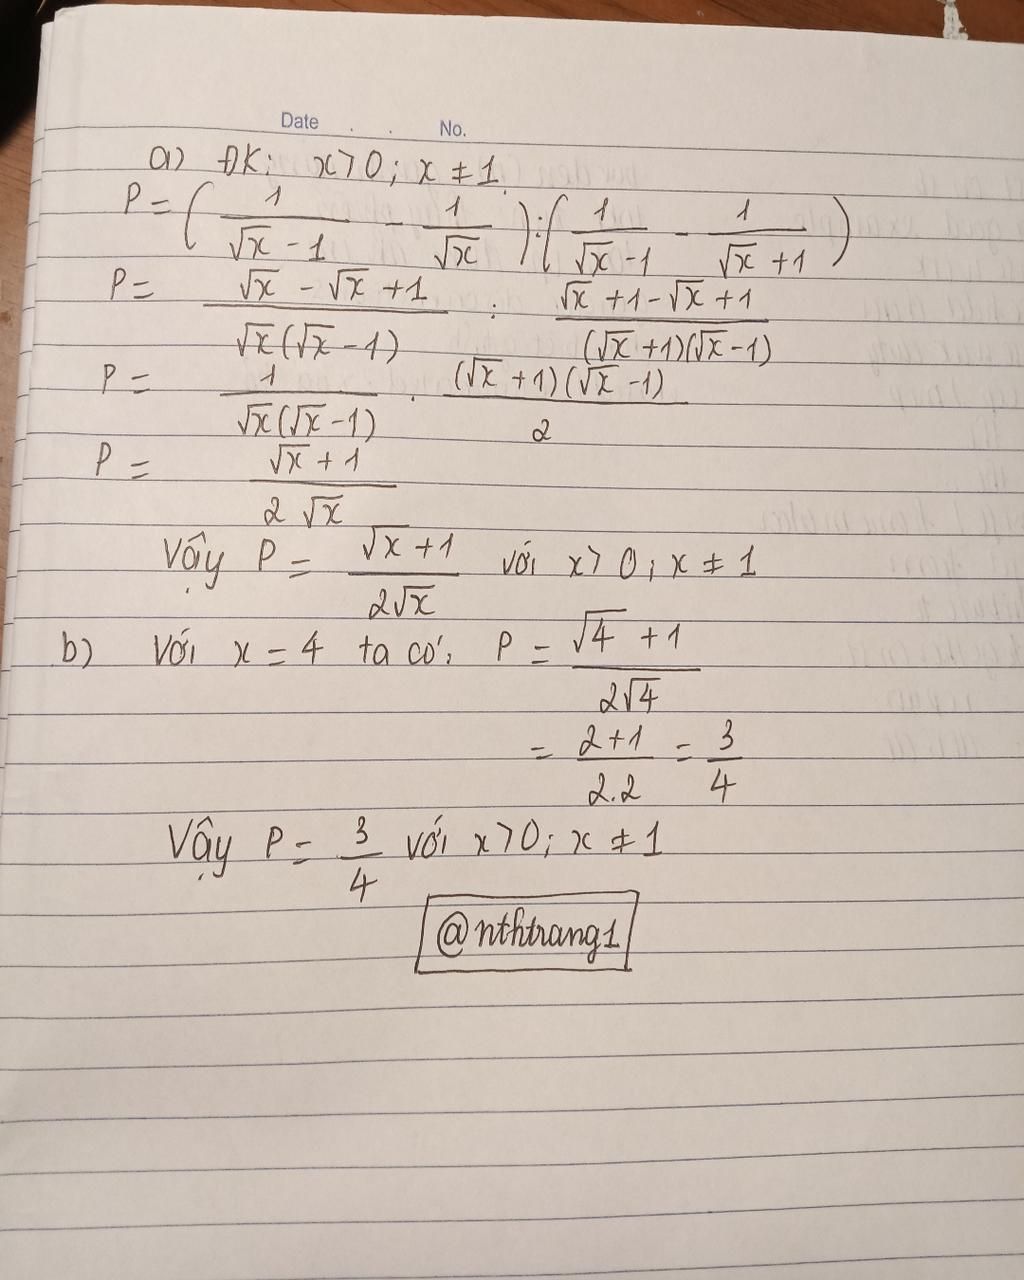 Date . . No.
a) ĐK: x > 0 ; x ≠ 1
P = ( 1/(√x - 1) - 1/√x ) : ( 1/(√x - 1) - 1/(√x + 1) )
P = (√x - √x + 1)/(√x(√x - 1)) : (√x + 1 - √x + 1)/((√x + 1)(√x - 1))
P = 1/(√x(√x - 1)) . ((√x + 1)(√x - 1))/2
P = (√x + 1)/(2√x)
Vậy P = (√x + 1)/(2√x) với x > 0 ; x ≠ 1
b) Với x = 4 ta có: P = (√4 + 1)/(2√4)
= (2 + 1)/(2.2) = 3/4
Vậy P = 3/4 với x > 0 ; x ≠ 1
@nthtrang1